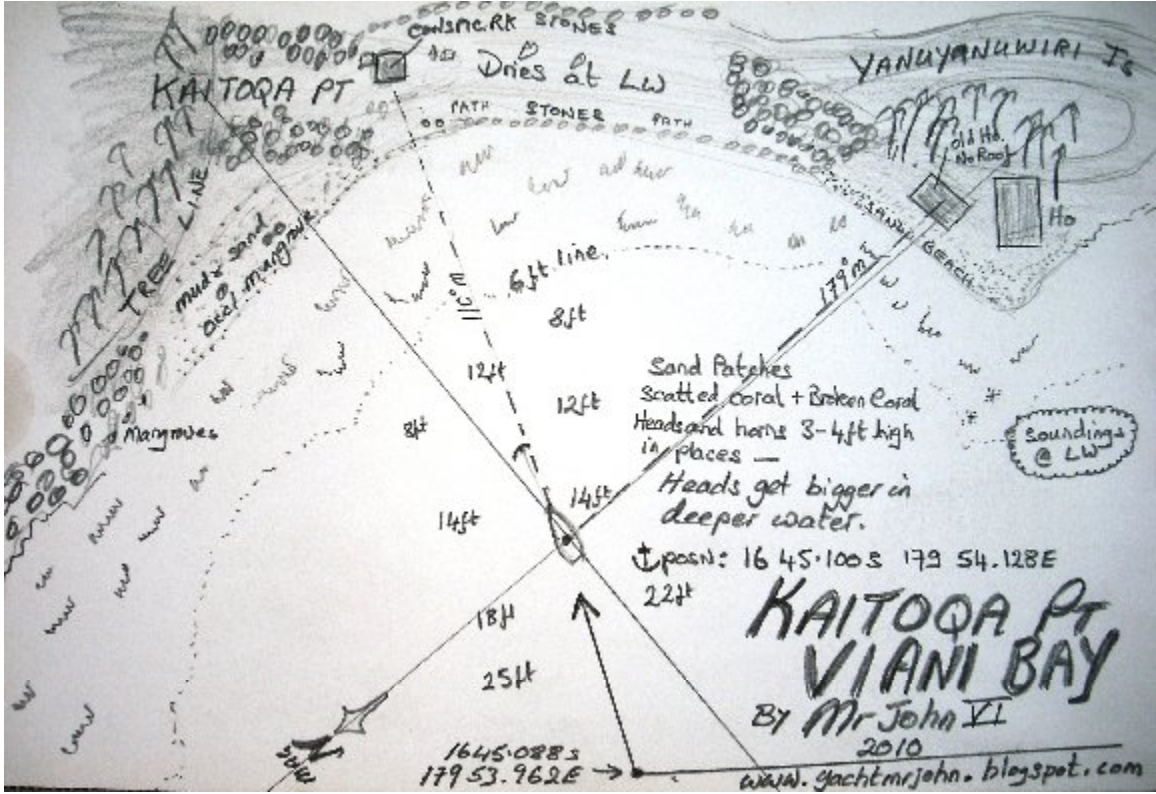 CONSPIC. RK STONES
KAITOQA PT
Dries at LW
YANUYANUWIRI Is
PATH STONES PATH
old Ho.
No Roof
Ho
TREE LINE
mud & sand
occl mangrove
SANDY BEACH
179°M
110°M
6ft line.
8ft
12ft
12ft
8ft
Mangroves
Sand Patches
Scatted coral + Broken Coral
Heads and horns 3-4ft high
in places —
Heads get bigger in
deeper water.
Soundings
@ LW
14ft
14ft
posn: 16 45.100S 179 54.128E
22ft
18ft
25ft
KAITOQA PT
VIANI BAY
By Mr John VI
2010
N
MAG
1645.088S
17953.962E
www.yachtmrjohn.blogspot.com